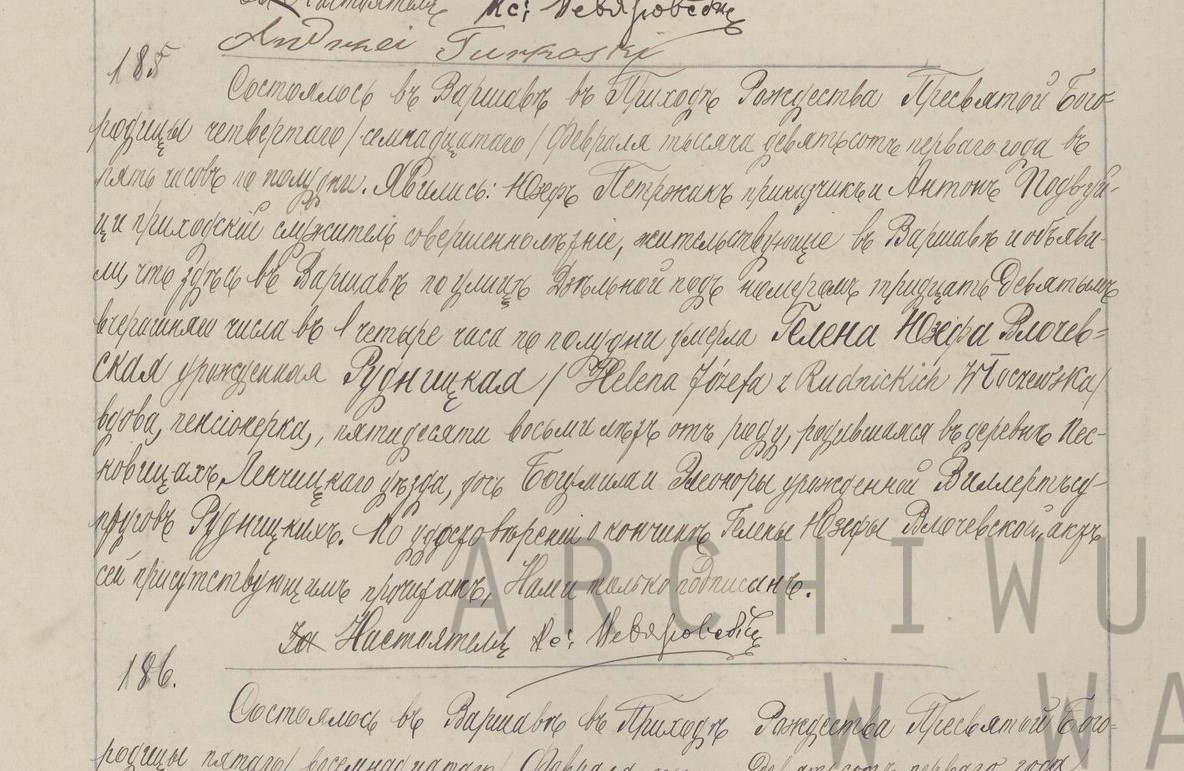 За Настоятеля Кс:
Andrzei Turkoski
185
Состоялось въ Варшавѣ въ Приходѣ Рождества Пресвятой Бого-
родицы четвертаго /семнадцатаго/ Февраля тысяча девятьсотъ перваго года въ
пять часовъ по полудни. Явились: Юзефъ Петржакъ приказчикъ и Антонъ
приходскій служитель совершеннолѣтніе, жительствующіе въ Варшавѣ и объяви-
ли, что здѣсь въ Варшавѣ по улицѣ Дѣльной подъ номеромъ тридцать девятымъ
вчерашняго числа въ четыре часа по полудни умерла Гелена Юзефа Влочев-
ская урожденная Рудницкая /Helena Józefa z Rudnickich Włoczewska/
вдова, пенсіонерка, пятидесяти восьми лѣтъ отъ роду, родившаяся въ деревнѣ Пес-
ковицахъ Ленчицкаго уѣзда, дочь Богумила и Элеоноры урожденной Виллертъ су-
пруговъ Рудницкихъ. По удостовѣреніи о кончинѣ Гелены Юзефы Влочевской, актъ
сей присутствующимъ прочитанъ, Нами только подписанъ.
За Настоятеля Кс:
186.
Состоялось въ Варшавѣ въ Приходѣ Рождества Пресвятой Бого-
родицы пятаго /восемнадцатаго/ Февраля тысяча девятьсотъ перваго года
ARCHIWU
W WA